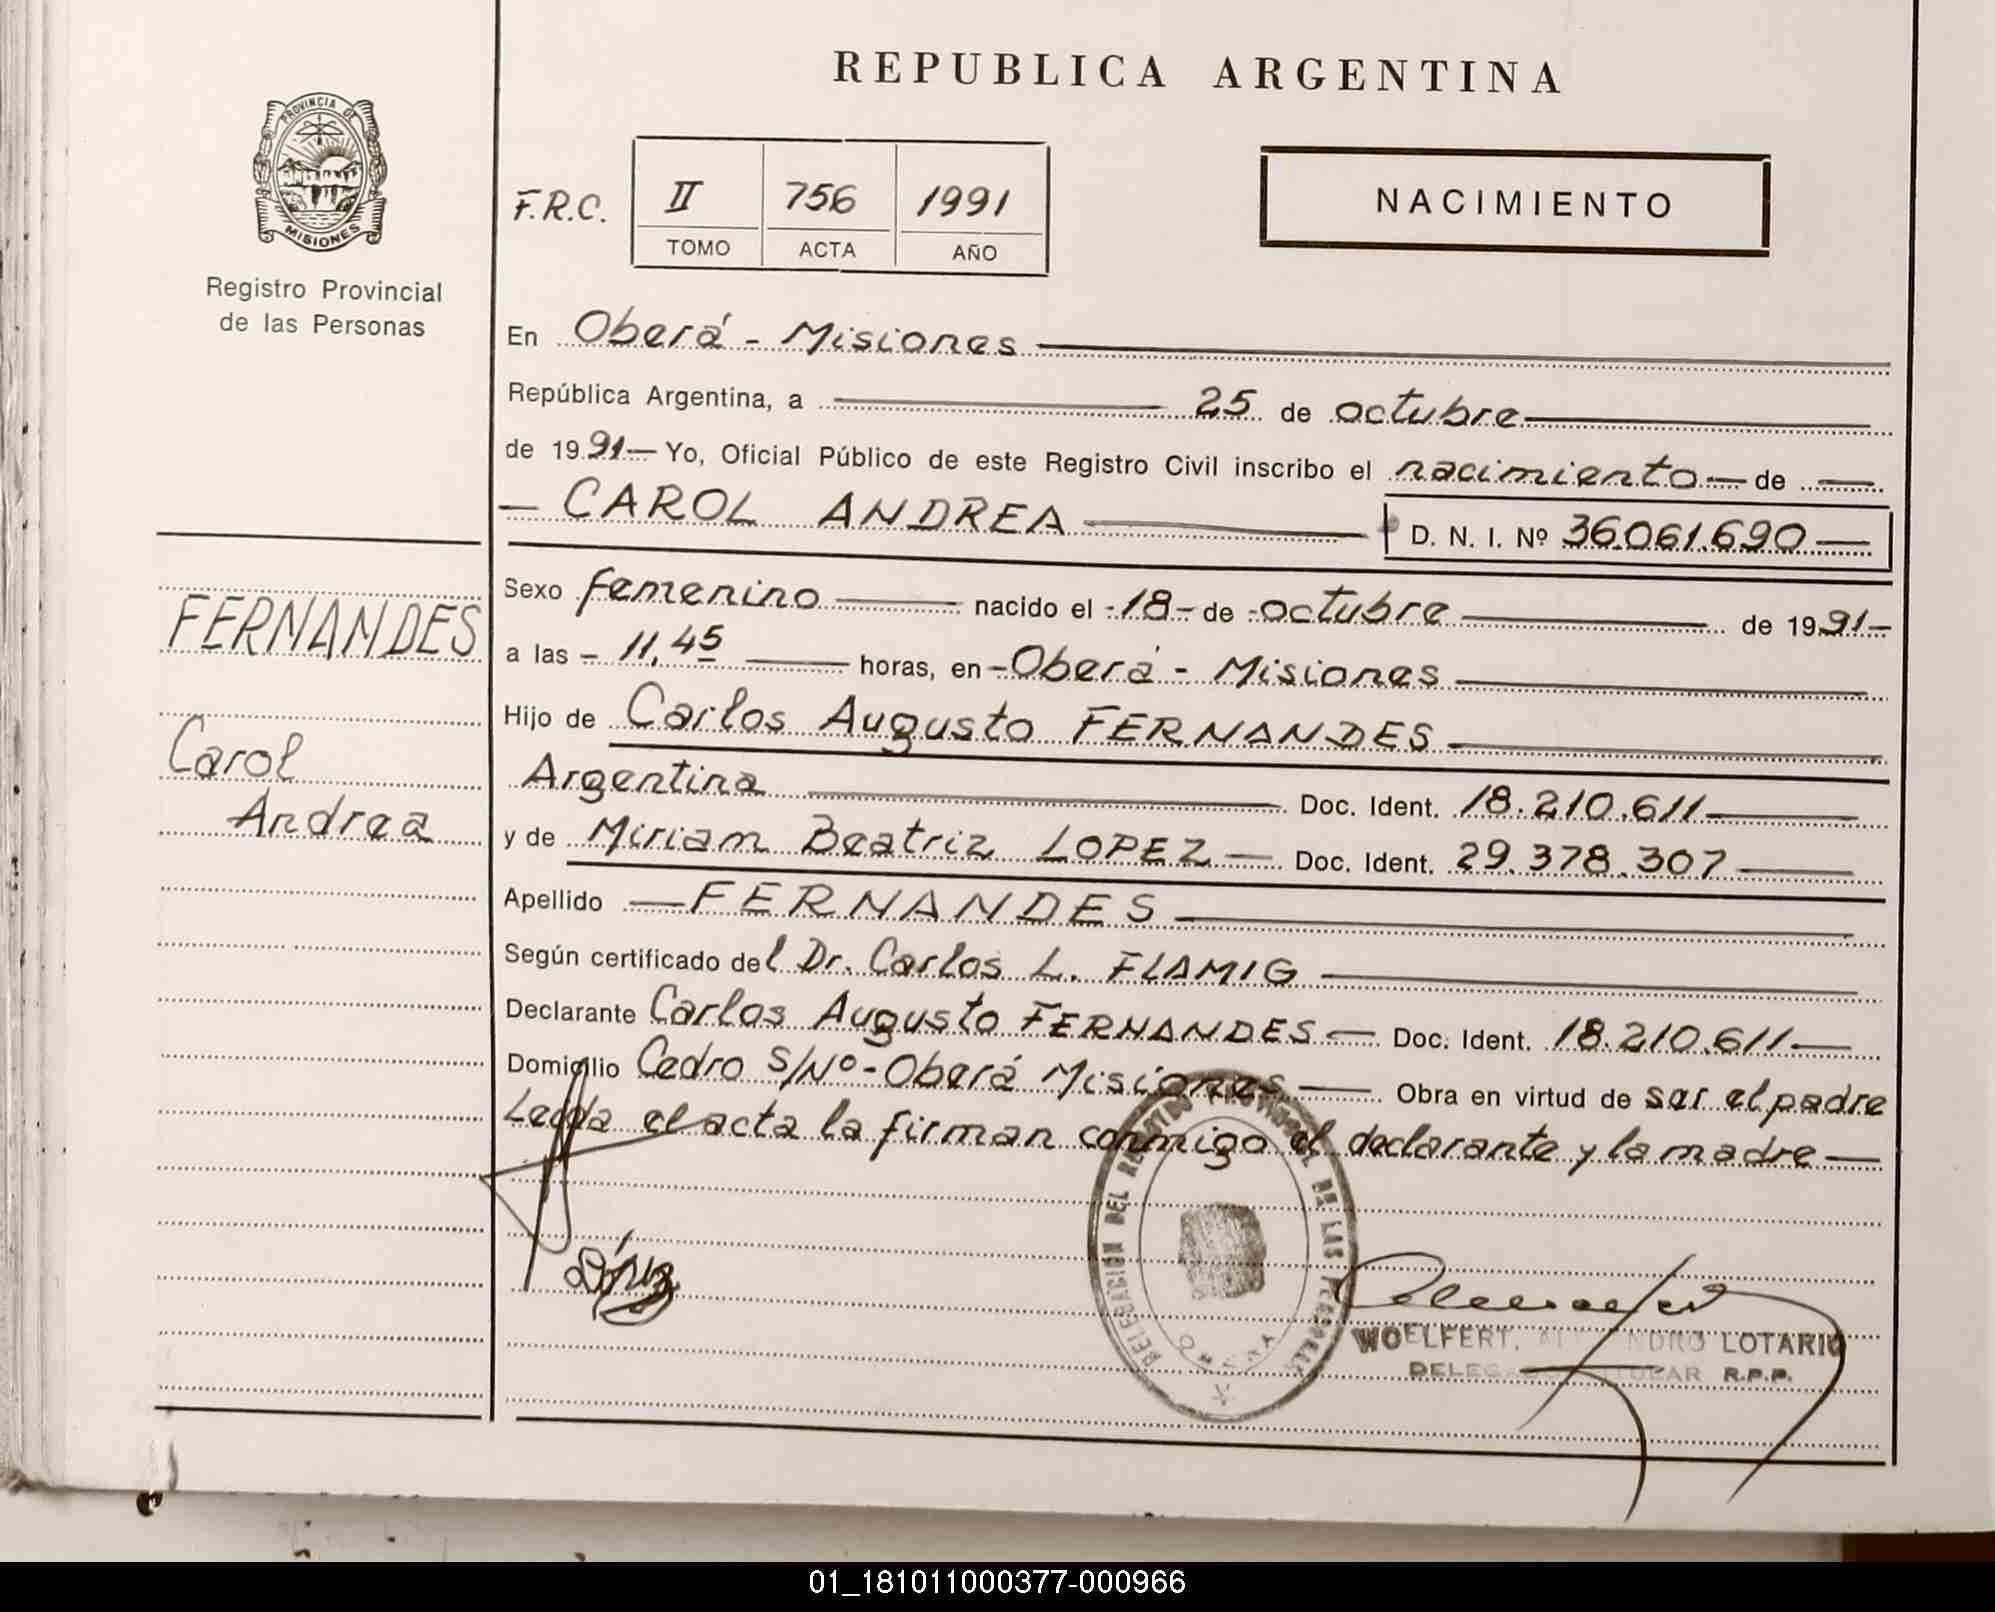 REPUBLICA ARGENTINA
PROVINCIA DE
MISIONES
Registro Provincial
de las Personas
F.R.C. II 756 1991
TOMO ACTA AÑO
NACIMIENTO
En Oberá - Misiones
República Argentina, a 25 de octubre
de 1991 - Yo, Oficial Público de este Registro Civil inscribo el nacimiento - de -
- CAROL ANDREA D. N. I. Nº 36.061.690 -
FERNANDES
Carol
Andrea
Sexo femenino nacido el - 18 - de - octubre de 1991 -
a las - 11,45 horas, en - Oberá - Misiones
Hijo de Carlos Augusto FERNANDES
Argentina Doc. Ident. 18.210.611
y de Miriam Beatriz LOPEZ - Doc. Ident. 29.378.307
Apellido - FERNANDES
Según certificado del Dr. Carlos L. FLAMIG
Declarante Carlos Augusto FERNANDES - Doc. Ident. 18.210.611
Domicilio Cedro S/Nº - Oberá Misiones Obra en virtud de ser el padre
Leída el acta la firman conmigo el declarante y la madre -
DELEGACION DEL REGISTRO PROVINCIAL DE LAS PERSONAS
WOELFERT, LOTARIO
R.P.P.
01_181011000377-000966